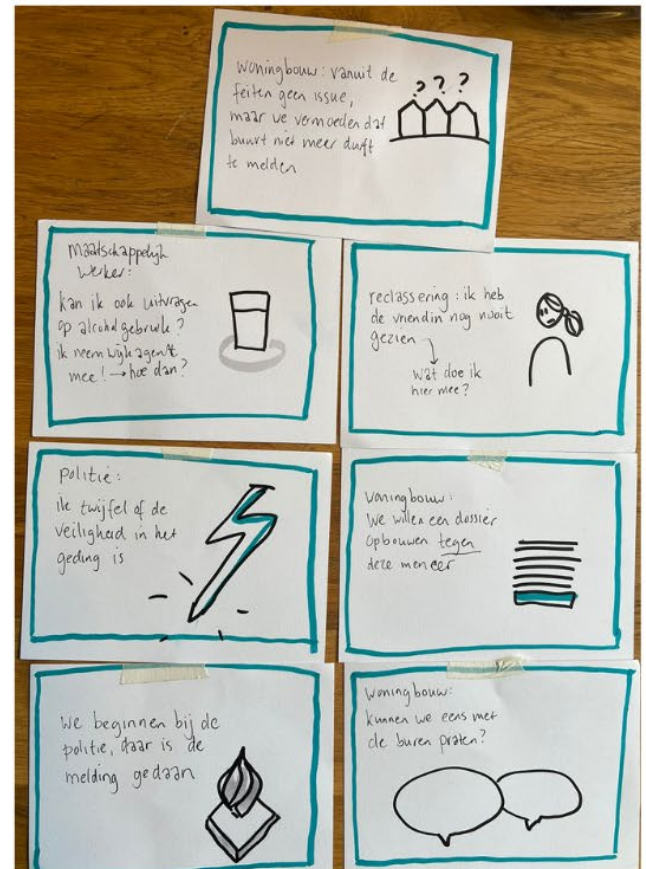 Woningbouw: vanuit de
feiten geen issue,
maar we vermoeden dat
buurt niet meer durft
te melden
???
Maatschappelijk
werker:
kan ik ook uitvragen
op alcoholgebruik?
ik neem wijkagent
mee! → hoe dan?
reclassering: ik heb
de vriendin nog nooit
gezien
wat doe ik
hier mee?
Politie:
ik twijfel of de
veiligheid in het
geding is
Woningbouw:
We willen een dossier
opbouwen tegen
deze meneer
We beginnen bij de
politie, daar is de
melding gedaan
Woningbouw:
kunnen we eens met
de buren praten?